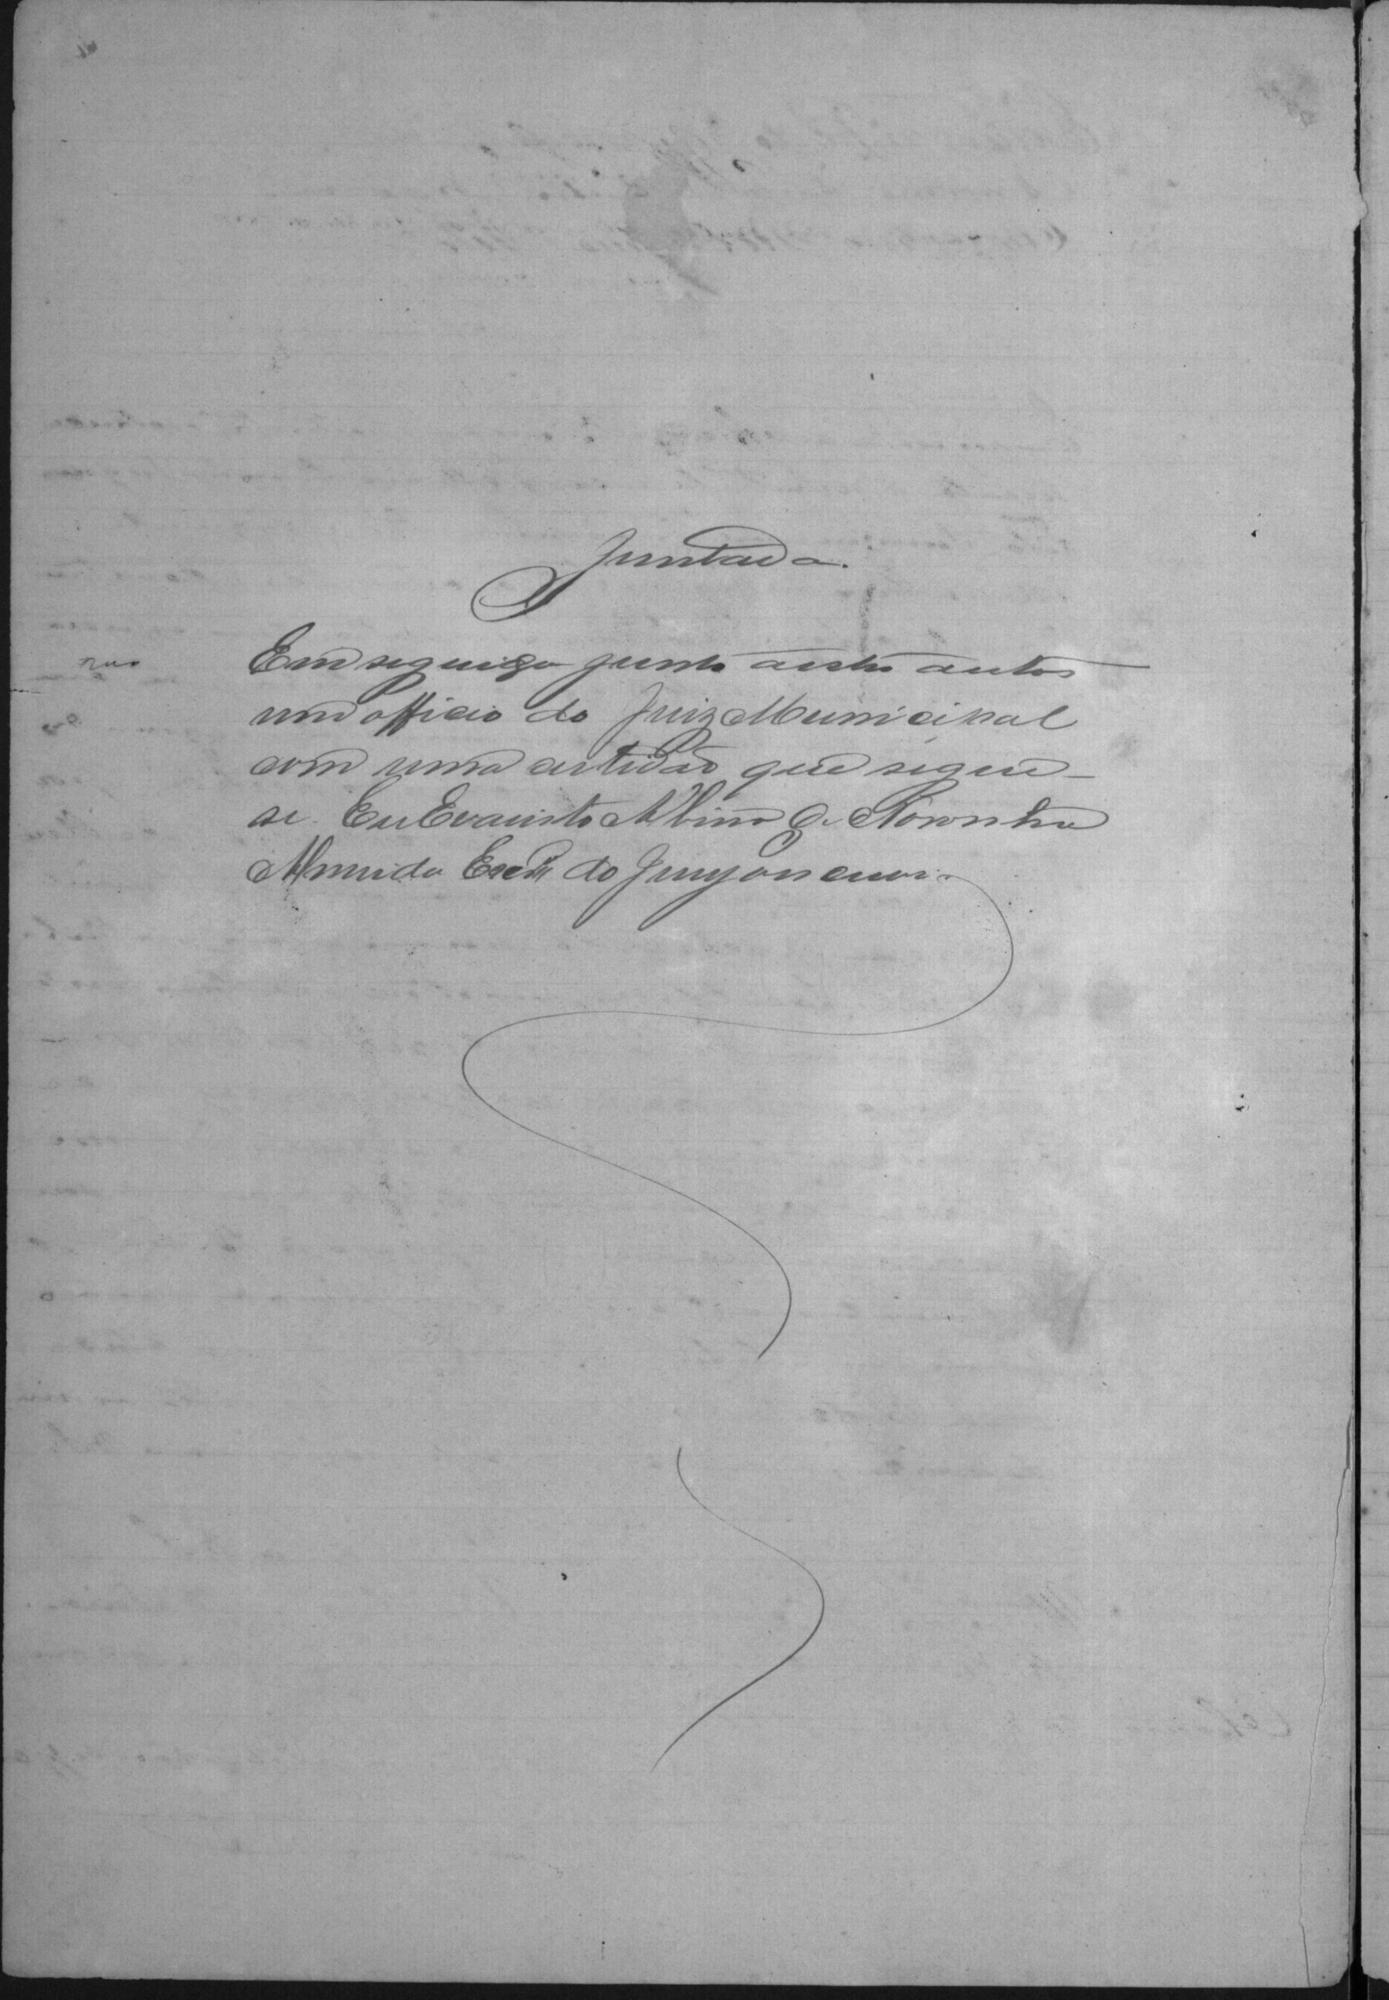 Juntada.
Em seguida junto a estes autos
um officio do Juiz Municipal
com uma certidão que segue-
se. Eu Evaristo Albino de Noronha
Almeida Escrm do Jury o escrevi.